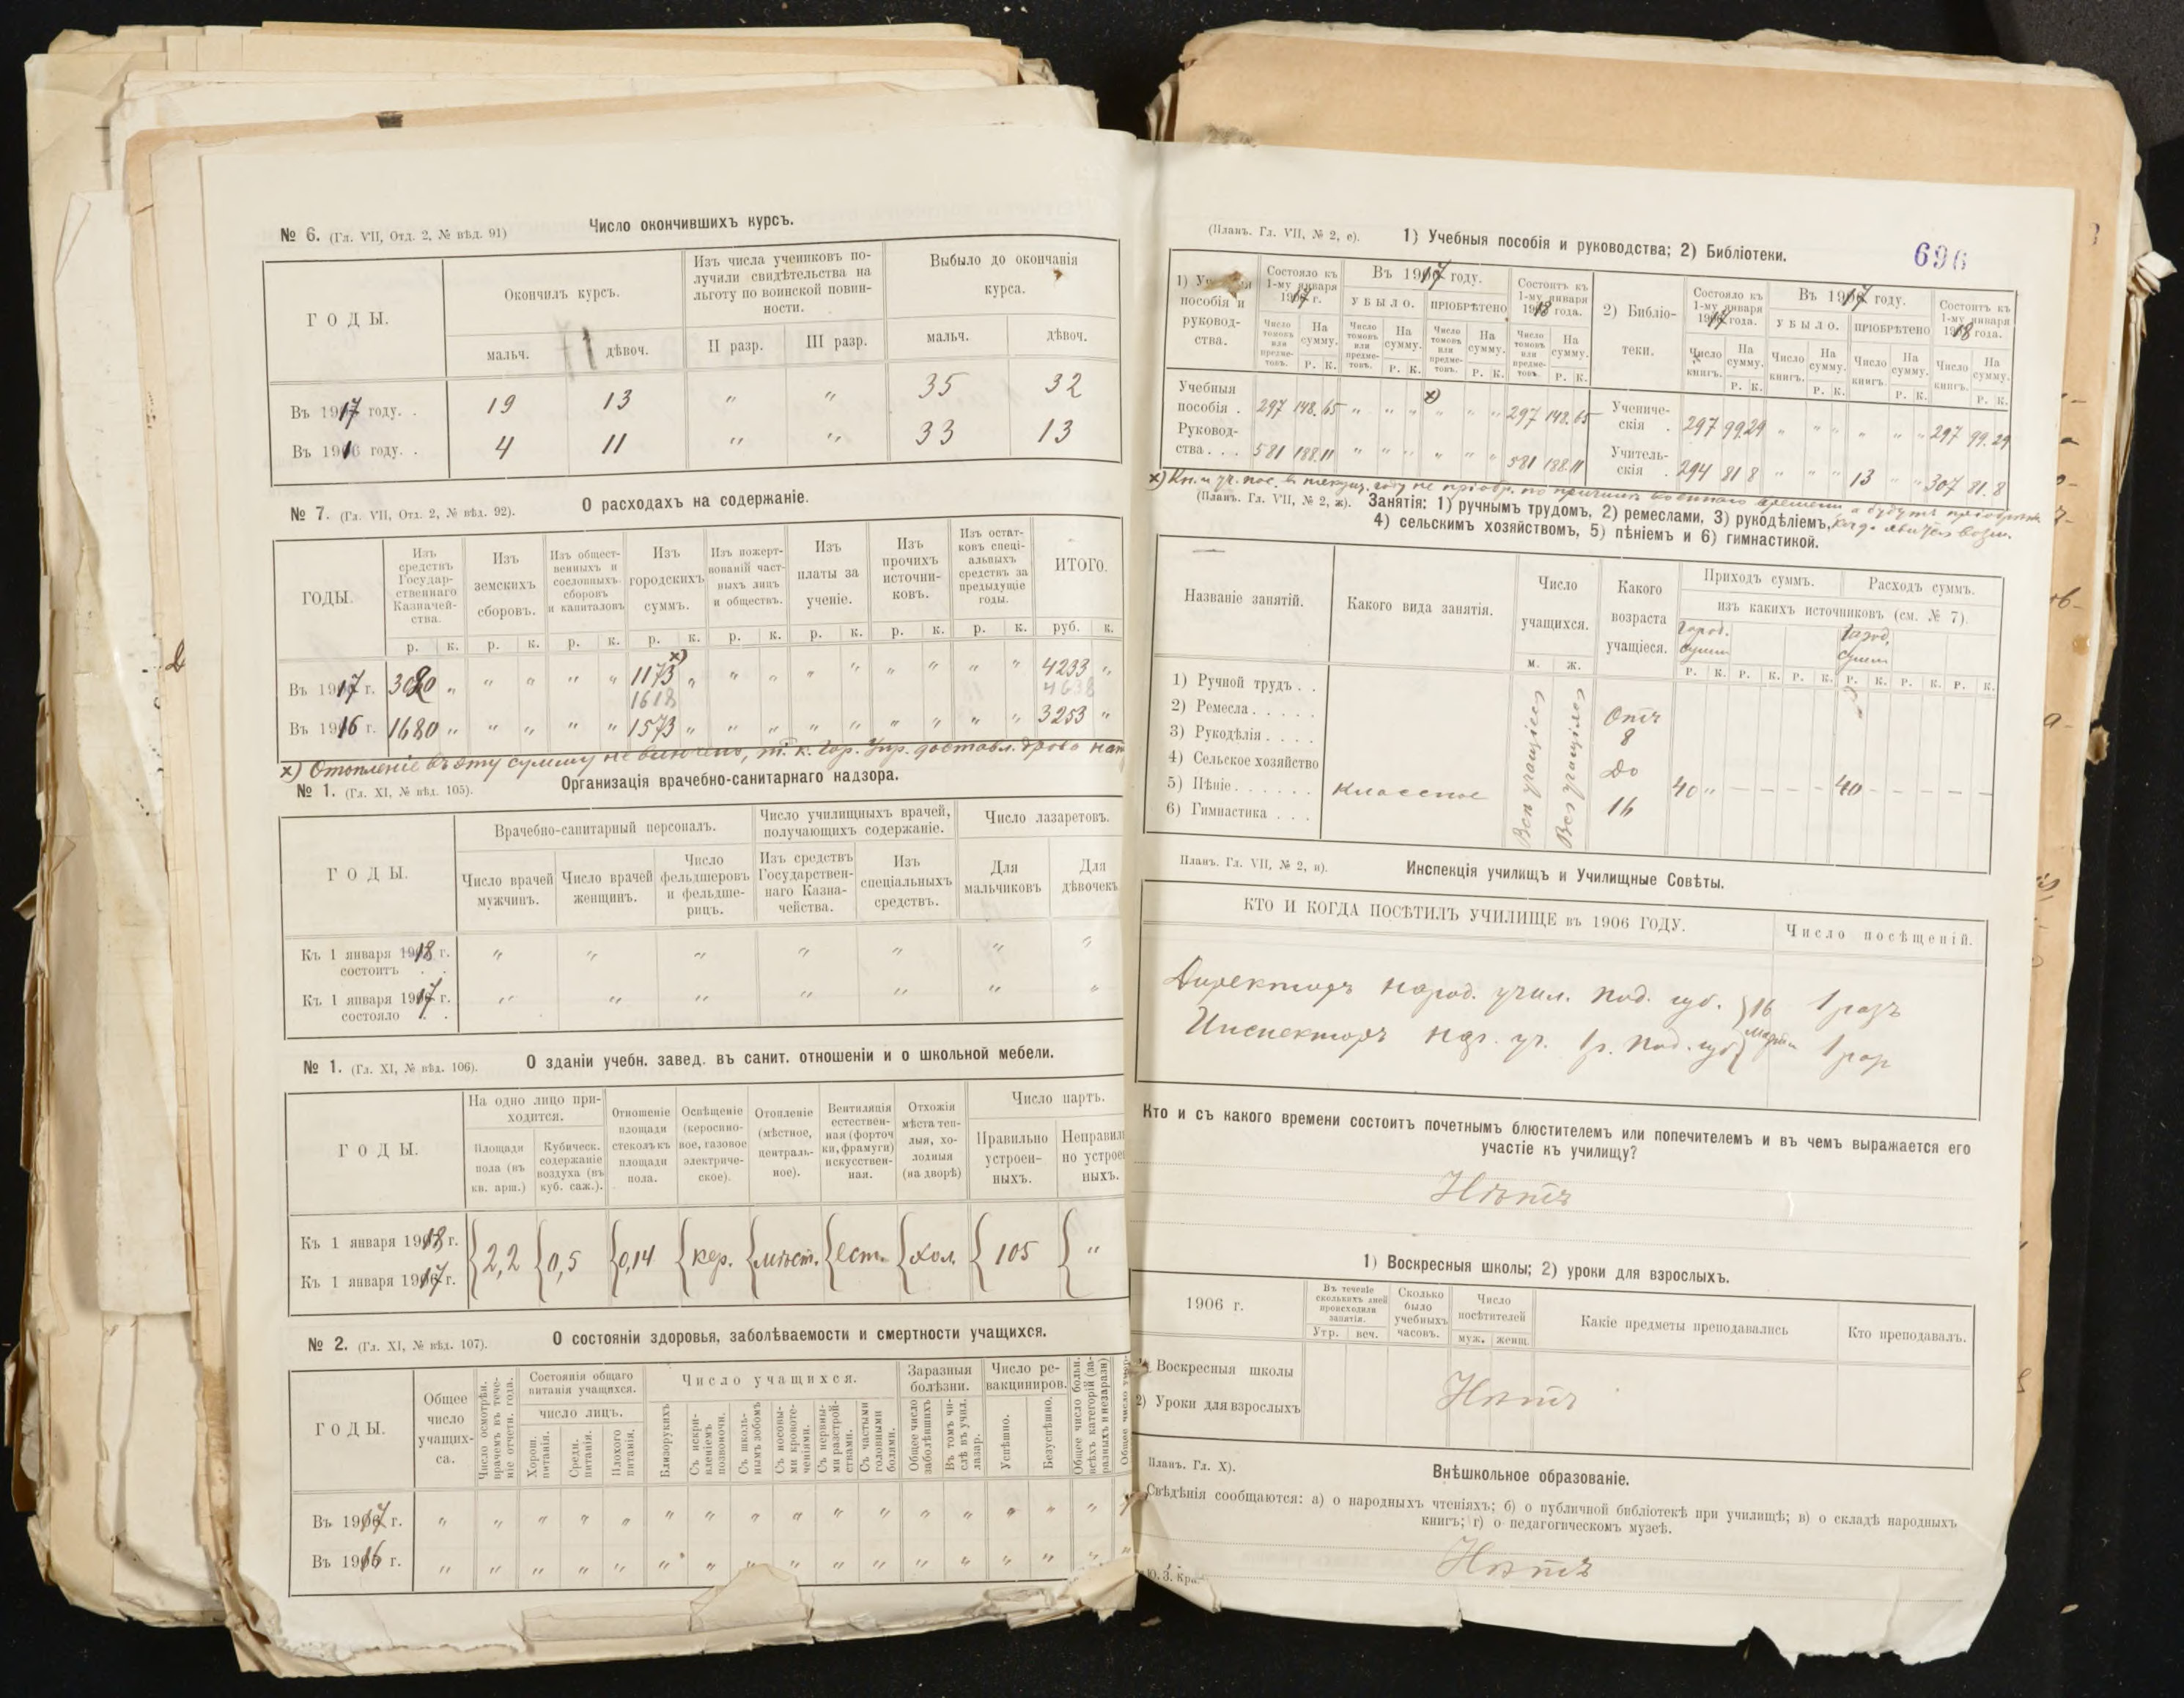 № 6. (Гл. VII, Отд. 2, № вѣд. 91) Число окончившихъ курсъ.
ГОДЫ. Окончилъ курсъ. Изъ числа учениковъ получили свидѣтельства на льготу по воинской повинности. Выбыло до окончанія курса.
мальч. дѣвоч. II разр. III разр. мальч. дѣвоч.
Въ 1917 году. . 19 13 " " 35 32
Въ 1916 году. . 4 11 " " 33 13
№ 7. (Гл. VII, Отд. 2, № вѣд. 92). О расходахъ на содержаніе.
ГОДЫ. Изъ средствъ Государственнаго Казначейства. Изъ земскихъ сборовъ. Изъ общественныхъ и сословныхъ сборовъ и капиталовъ Изъ городскихъ суммъ. Изъ пожертвованій частныхъ лицъ и обществъ. Изъ платы за ученіе. Изъ прочихъ источниковъ. Изъ остатковъ спеціальныхъ средствъ за предыдущіе годы. ИТОГО.
р. к. р. к. р. к. р. к. р. к. р. к. р. к. р. к. руб. к.
х)
Въ 1917 г. 3020 " " " " " 1173 " " " " " " " " " 4233 "
1618 4638
Въ 1916 г. 1680 " " " " " 1573 " " " " " " " " " 3253 "
х) Отопленіе въ эту сумму не включено, т. к. Гор. Упр. доставл. дрова нат
№ 1. (Гл. XI, № вѣд. 105). Организація врачебно-санитарнаго надзора.
ГОДЫ. Врачебно-санитарный персоналъ. Число училищныхъ врачей, получающихъ содержаніе. Число лазаретовъ.
Число врачей мужчинъ. Число врачей женщинъ. Число фельдшеровъ и фельдшерицъ. Изъ средствъ Государственнаго Казначейства. Изъ спеціальныхъ средствъ. Для мальчиковъ Для дѣвочекъ
Къ 1 января 1918 г. состоитъ . . " " " " " " "
Къ 1 января 1917 г. состояло . . " " " " " " "
№ 1. (Гл. XI, № вѣд. 106). О зданіи учебн. завед. въ санит. отношеніи и о школьной мебели.
ГОДЫ. На одно лицо приходится. Отношеніе площади стеколъ къ площади пола. Освѣщеніе (керосиновое, газовое электрическое). Отопленіе (мѣстное, центральное). Вентиляція естественная (форточки, фрамуги) искусственная. Отхожія мѣста теплыя, холодныя (на дворѣ) Число партъ.
Площади пола (въ кв. арш.) Кубическ. содержаніе воздуха (въ куб. саж.). Правильно устроенныхъ. Неправильно устроенныхъ.
Къ 1 января 1918 г.
Къ 1 января 1917 г.
2,2 0,5 0,14 кер. мѣст. ест. хол. 105 "
№ 2. (Гл. XI, № вѣд. 107). О состояніи здоровья, заболѣваемости и смертности учащихся.
ГОДЫ. Общее число учащихся. Число осмотрѣн. врачемъ въ теченіе отчетн. года. Состоянія общаго питанія учащихся. Число учащихся. Заразныя болѣзни. Число ревакциниров. Общее число больн. всѣхъ категорій (заразныхъ и незаразн)
число лицъ.
Хорош. питанія. Средн. питанія. Плохого питанія. Близорукихъ Съ искривленіемъ позвоночн. Съ школьнымъ зобомъ Съ носовыми кровотеченіями. Съ нервными разстройствами. Съ частыми головными болями. Общее число заболѣвшихъ Въ томъ числѣ въ учил. лазар. Успѣшно. Безуспѣшно.
Въ 1917 г. " " " " " " " " " " " " " " " "
Въ 1916 г. " " " " " " " " " " " " " " " " "
(Планъ. Гл. VII, № 2, е). 1) Учебныя пособія и руководства; 2) Библіотеки. 696
пособія и руководства. Состояло къ 1-му января 1917 г. Въ 1917 году. Состоитъ къ 1-му января 1918 года. 2) Библіотеки. Состояло къ 1-му января 1917 года. Въ 1917 году. Состоитъ къ 1-му января 1918 года.
УБЫЛО. ПРІОБРѢТЕНО УБЫЛО. ПРІОБРѢТЕНО
Число томовъ или предметовъ. На сумму. Число томовъ или предметовъ. На сумму. Число томовъ или предметовъ. На сумму. Число томовъ или предметовъ. На сумму. Число книгъ. На сумму. Число книгъ. На сумму. Число книгъ. На сумму. Число книгъ. На сумму.
Р. К. Р. К. Р. К. Р. К. Р. К. Р. К. Р. К. Р. К.
х)
Учебныя пособія . 297 148. 65 " " " " " " 297 148. 65 Ученическія . 297 99.29 " " " " " " 297 99. 29
Руководства . . . 581 188.11 " " " " " " 581 188.11 Учительскія . 294 81 8 " " " 13 " " 307 81. 8
х) Кн. и уч. пос. въ текущ. году не пріобр. по причинѣ военнаго времени а будутъ пріобрѣт.
когда явится возм.
(Планъ. Гл. VII, № 2, ж). Занятія: 1) ручнымъ трудомъ, 2) ремеслами, 3) рукодѣліемъ,
4) сельскимъ хозяйствомъ, 5) пѣніемъ и 6) гимнастикой.
Названіе занятій. Какого вида занятія. Число учащихся. Какого возраста учащіеся. Приходъ суммъ. Расходъ суммъ.
изъ какихъ источниковъ (см. № 7).
Город. сумм Город. сумм
м. ж. Р. К. Р. К. Р. К. Р. К. Р. К. Р. К.
1) Ручной трудъ . .
2) Ремесла . . . . .
3) Рукодѣлія . . . .
4) Сельское хозяйство
5) Пѣніе . . . . . . классное Всѣ учащіеся Всѣ учащіяся Отъ 8 до 16 40 " — — — — 40 — — — — —
6) Гимнастика . . .
Планъ. Гл. VII, № 2, и). Инспекція училищъ и Училищные Совѣты.
КТО И КОГДА ПОСѢТИЛЪ УЧИЛИЩЕ въ 1906 ГОДУ. Число посѣщеній.
Директоръ народ. учил. Под. губ. } 16 1 разъ
Инспекторъ нар. уч. 1 р. Под. губ } марта 1 раз
Кто и съ какого времени состоитъ почетнымъ блюстителемъ или попечителемъ и въ чемъ выражается его
участіе къ училищу?
Нѣтъ
1) Воскресныя школы; 2) уроки для взрослыхъ.
1906 г. Въ теченіе сколькихъ дней происходили занятія. Сколько было учебныхъ часовъ. Число посѣтителей Какіе предметы преподавались Кто преподавалъ.
Утр. веч. муж. женщ.
Воскресныя школы
2) Уроки для взрослыхъ
Нѣтъ
Планъ. Гл. X). Внѣшкольное образованіе.
Свѣдѣнія сообщаются: а) о народныхъ чтеніяхъ; б) о публичной библіотекѣ при училищѣ; в) о складѣ народныхъ
книгъ; г) о педагогическомъ музеѣ.
Нѣтъ